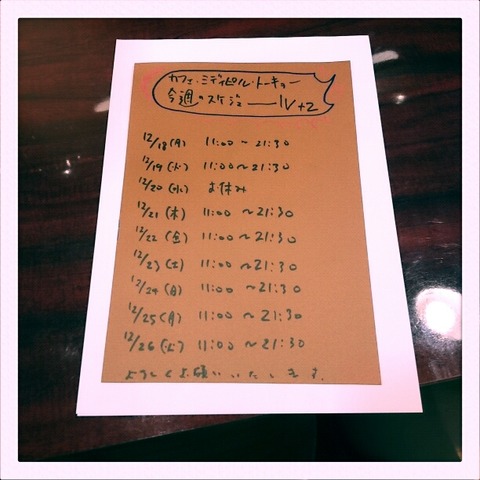 カフェ・ミディピル・トーキョー
今週のスケジュールV+2
12/18(月) 11:00～21:30
12/19(火) 11:00～21:30
12/20(水) お休み
12/21(木) 11:00～21:30
12/22(金) 11:00～21:30
12/23(土) 11:00～21:30
12/24(日) 11:00～21:30
12/25(月) 11:00～21:30
12/26(火) 11:00～21:30
よろしくお願いいたします。